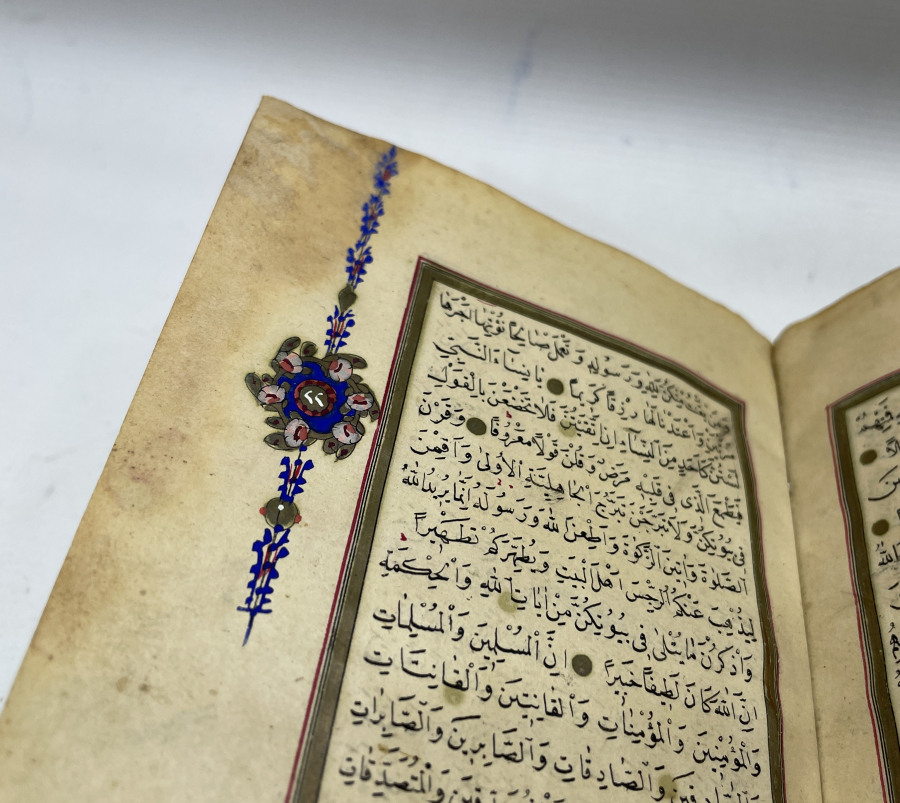 ٢٢
لِلّٰهِ وَرَسُولِهِ وَتَعْمَلْ صَالِحًا نُؤْتِهَا اَجْرَهَا
وَاَعْتَدْنَا لَهَا رِزْقًا كَرِيمًا يَا نِسَاءَ النَّبِيِّ
لَسْتُنَّ كَاَحَدٍ مِنَ النِّسَاءِ اِنِ اتَّقَيْتُنَّ فَلَا تَخْضَعْنَ بِالْقَوْلِ
فَيَطْمَعَ الَّذِي فِي قَلْبِهِ مَرَضٌ وَقُلْنَ قَوْلًا مَعْرُوفًا وَقَرْنَ
فِي بُيُوتِكُنَّ وَلَا تَبَرَّجْنَ تَبَرُّجَ الْجَاهِلِيَّةِ الْاُولٰى وَاَقِمْنَ
الصَّلٰوةَ وَاٰتِينَ الزَّكٰوةَ وَاَطِعْنَ اللّٰهَ وَرَسُولَهُ اِنَّمَا يُرِيدُ اللّٰهُ
لِيُذْهِبَ عَنْكُمُ الرِّجْسَ اَهْلَ الْبَيْتِ وَيُطَهِّرَكُمْ تَطْهِيرًا
وَاذْكُرْنَ مَا يُتْلٰى فِي بُيُوتِكُنَّ مِنْ اٰيَاتِ اللّٰهِ وَالْحِكْمَةِ
اِنَّ اللّٰهَ كَانَ لَطِيفًا خَبِيرًا اِنَّ الْمُسْلِمِينَ وَالْمُسْلِمَاتِ
وَالْمُؤْمِنِينَ وَالْمُؤْمِنَاتِ وَالْقَانِتِينَ وَالْقَانِتَاتِ
وَالصَّادِقِينَ وَالصَّادِقَاتِ وَالصَّابِرِينَ وَالصَّابِرَاتِ
وَالْمُتَصَدِّقَاتِ